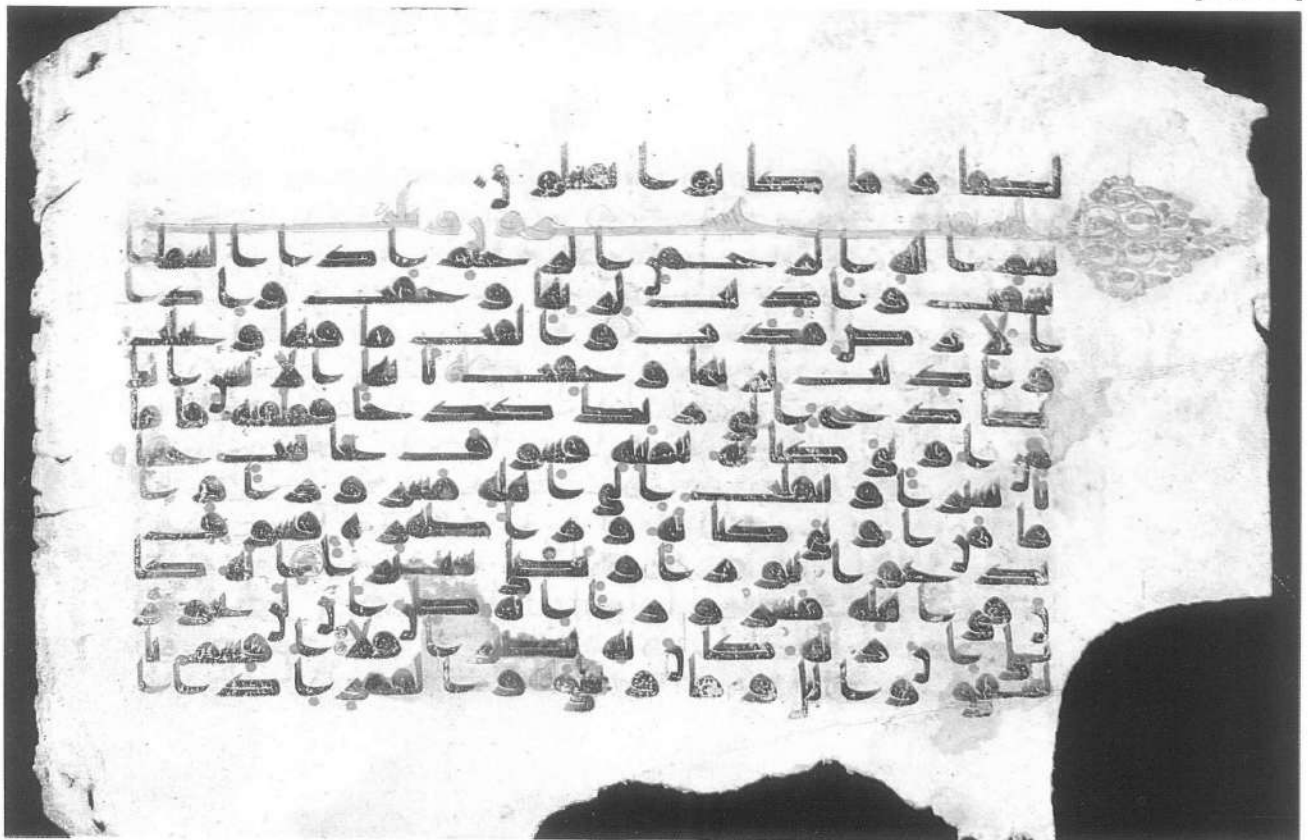 لكفار ما كانوا يفعلون
السما انشقت عشرون
بسم الله الرحمن الرحيم اذا السما ا
نشقت واذنت لربها وحقت واذا
الارض مدت والقت ما فيها وتخلت
واذنت لربها وحقت يايها الانسن ا
نك كادح الى ربك كدحا فملقيه فاما
من اوتى كتبه بيمينه فسوف يحاسب حسا
با يسيرا وينقلب الى اهله مسرورا وا
ما من اوتى كتبه ورا ظهره فسوف
يدعوا ثبورا ويصلى سعيرا انه كا
ن فى اهله مسرورا انه ظن ان لن يحور
بلى ان ربه كان به بصيرا فلا اقسم با
لشفق واليل وما وسق والقمر اذا ا